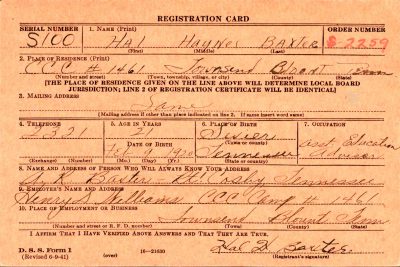 REGISTRATION CARD
SERIAL NUMBER 1. NAME (Print) ORDER NUMBER
S100 Hal Haynes Baxter 2259
(First) (Middle) (Last)
2. PLACE OF RESIDENCE (Print)
CCC # 1461 Townsend Blount Tenn
(Number and street) (Town, township, village, or city) (County) (State)
[THE PLACE OF RESIDENCE GIVEN ON THE LINE ABOVE WILL DETERMINE LOCAL BOARD
JURISDICTION; LINE 2 OF REGISTRATION CERTIFICATE WILL BE IDENTICAL]
3. MAILING ADDRESS
Same
[Mailing address if other than place indicated on line 2. If same insert word same]
4. TELEPHONE 5. AGE IN YEARS 6. PLACE OF BIRTH 7. OCCUPATION
2321 21 Sevier
DATE OF BIRTH (Town or county)
Feb 9 1920 Tennessee Asst Education Advisor
(Exchange) (Number) (Mo.) (Day) (Yr.) (State or country)
8. NAME AND ADDRESS OF PERSON WHO WILL ALWAYS KNOW YOUR ADDRESS
Baxter Cosby Tennessee
9. EMPLOYER'S NAME AND ADDRESS
Henry S. Williams CCC Camp # 1461
10. PLACE OF EMPLOYMENT OR BUSINESS
Townsend Blount Tenn
(Number and street or R. F. D. number) (Town) (County) (State)
I AFFIRM THAT I HAVE VERIFIED ABOVE ANSWERS AND THAT THEY ARE TRUE.
D. S. S. Form 1 (over) 16—21630 Hal H. Baxter
(Revised 6-9-41)